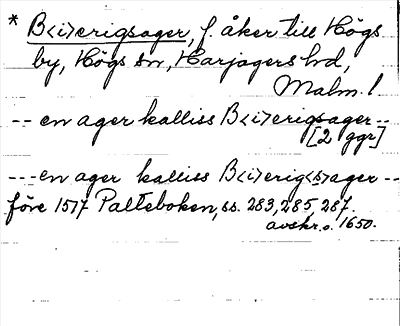 * B<i>erigsager, f. åker till Högs
by, Högs sn, Harjagers hd,
Malm. l.
-- en ager kalliss B<i>erigsager --
[2 ggr]
--- en ager kalliss B<i>erig<s>ager --
före 1517 Palteboken, ss. 283, 285, 287.
avskr. o. 1650.